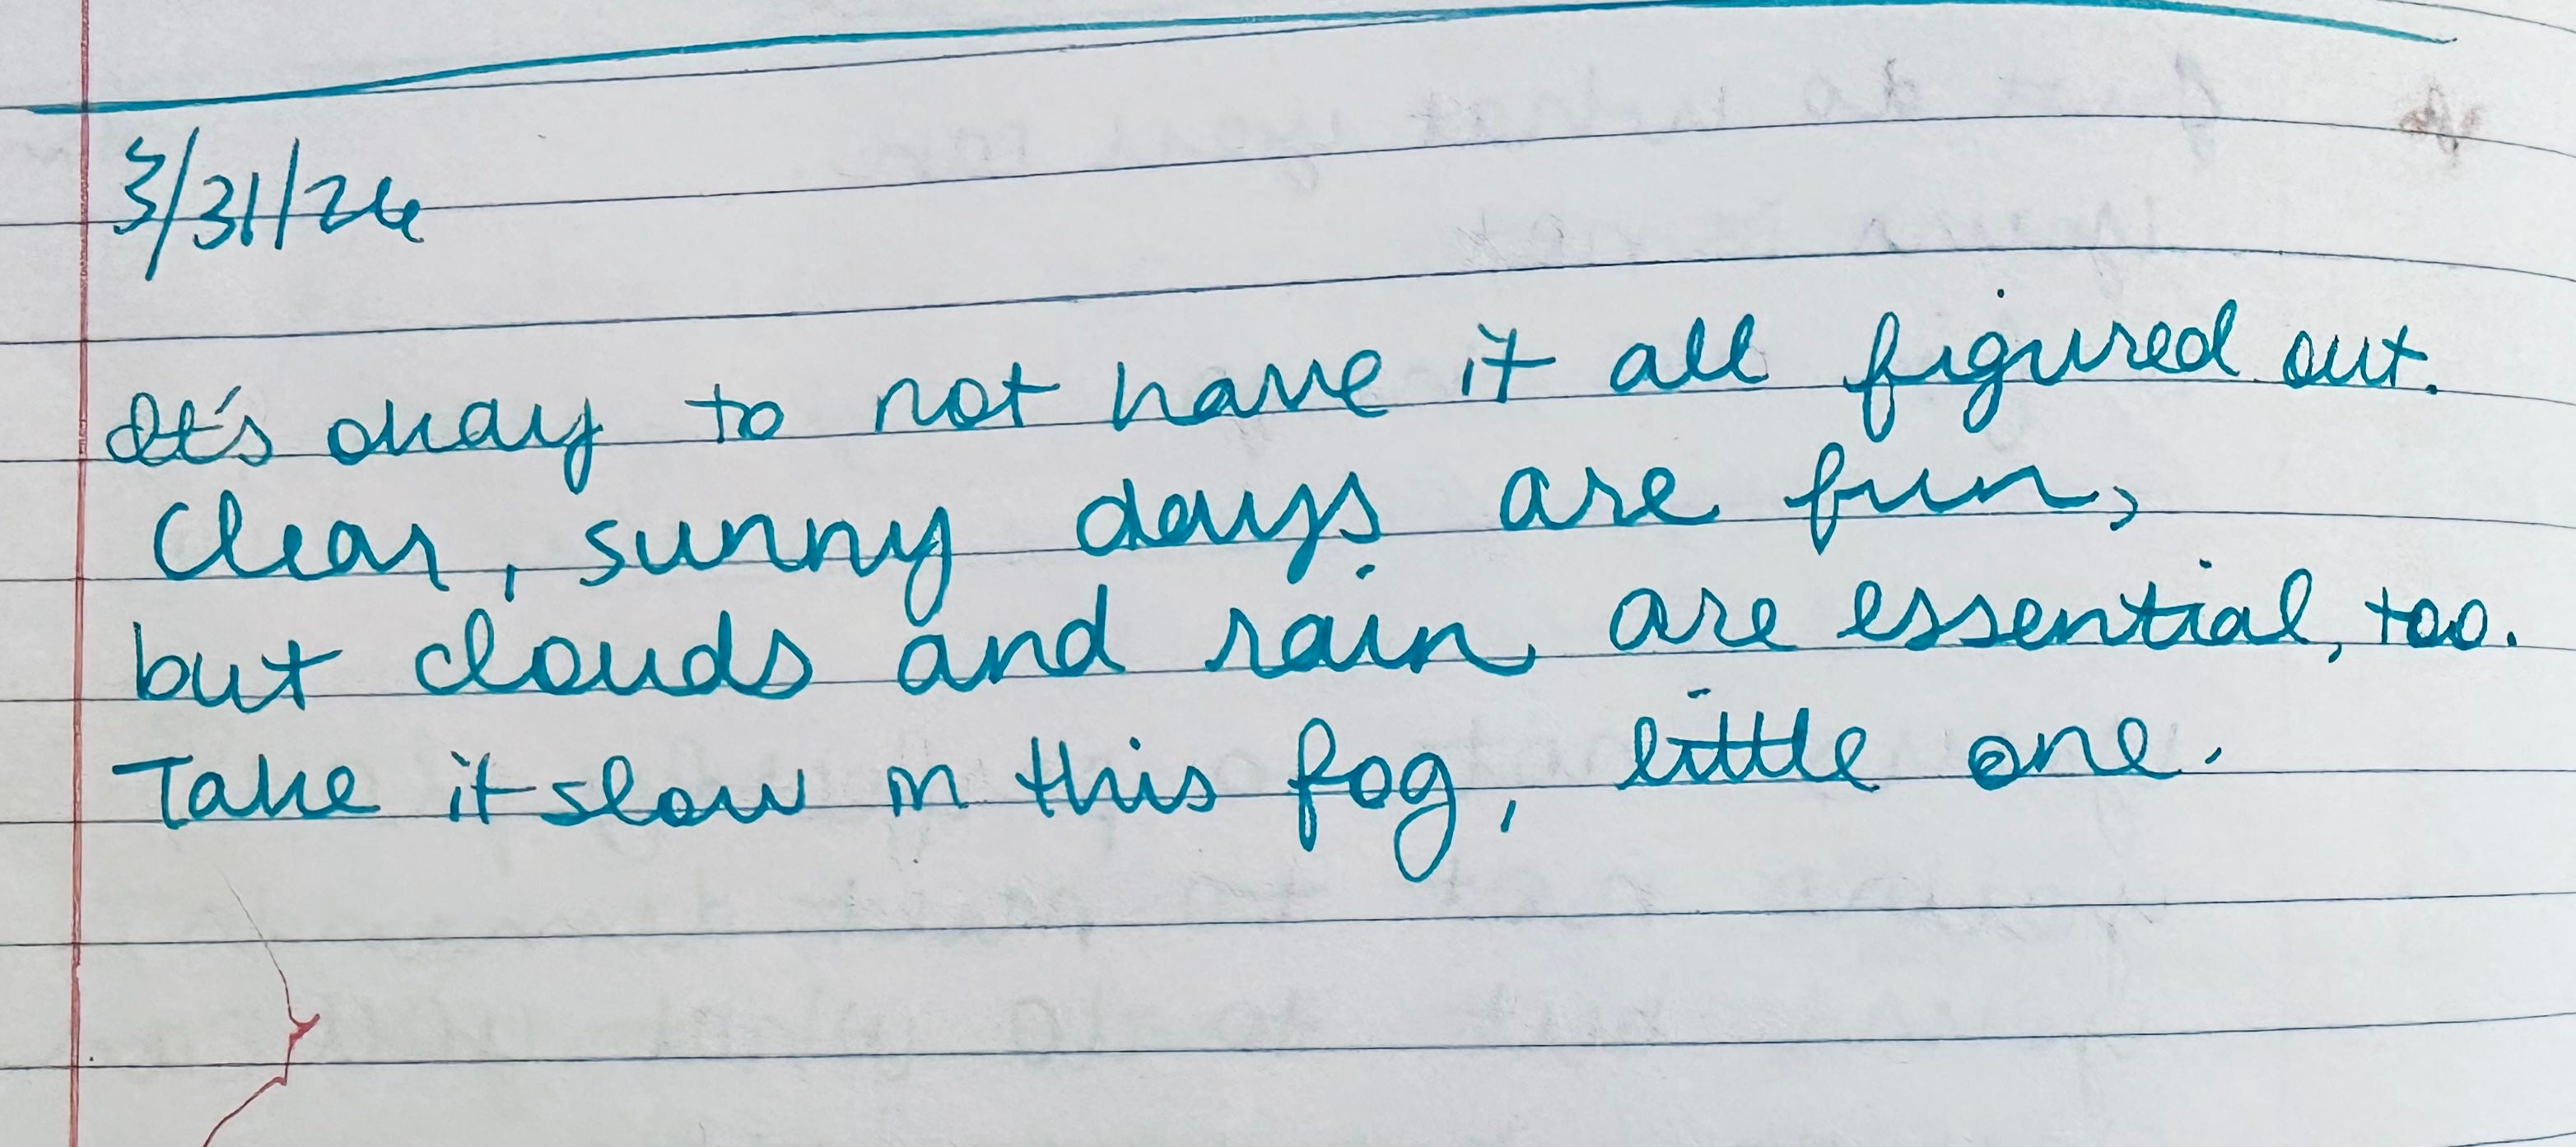 3/31/26
It's okay to not have it all figured out.
Clear, sunny days are fun,
but clouds and rain are essential, too.
Take it slow in this fog, little one.